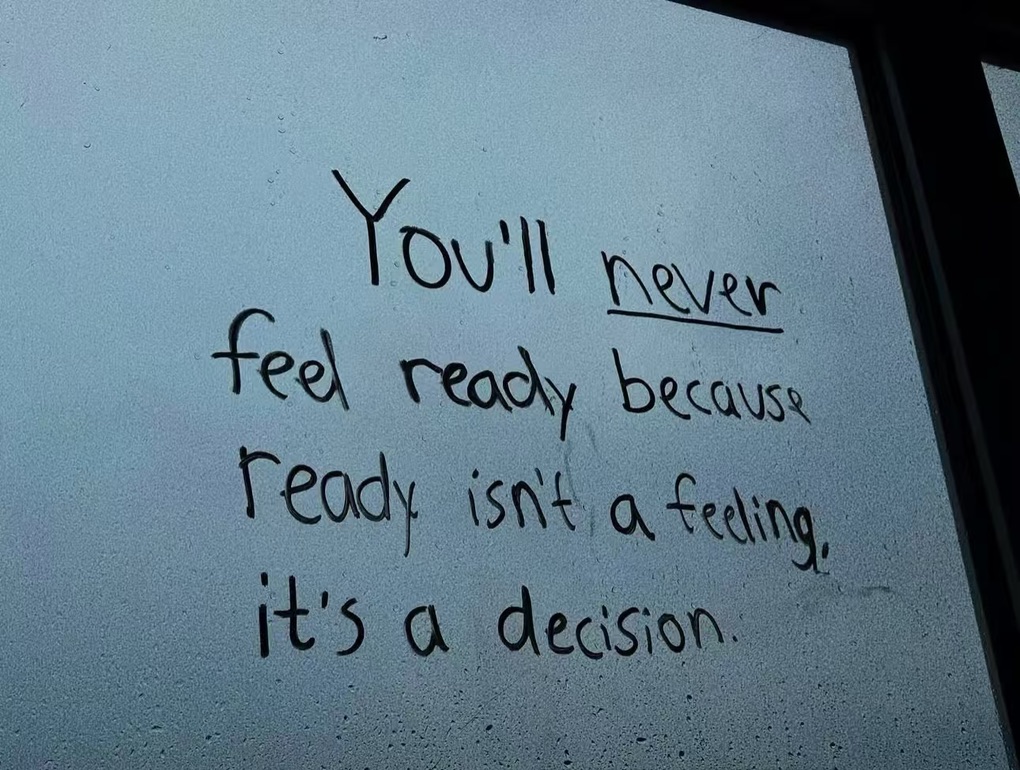 You'll never
feel ready because
ready isn't a feeling,
it's a decision.